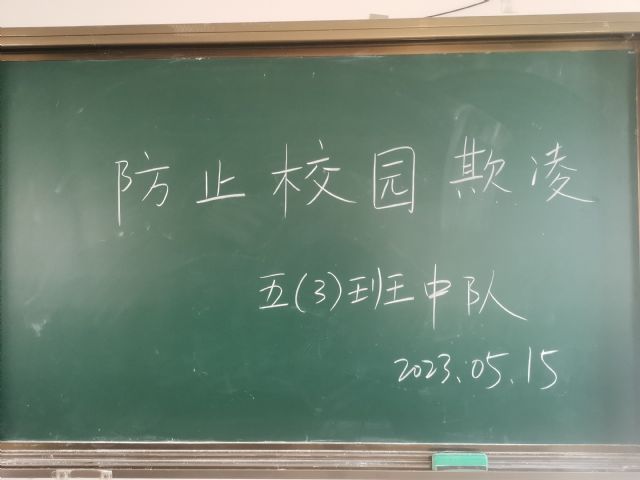 防止校园欺凌
五(3)班中队
2023.05.15